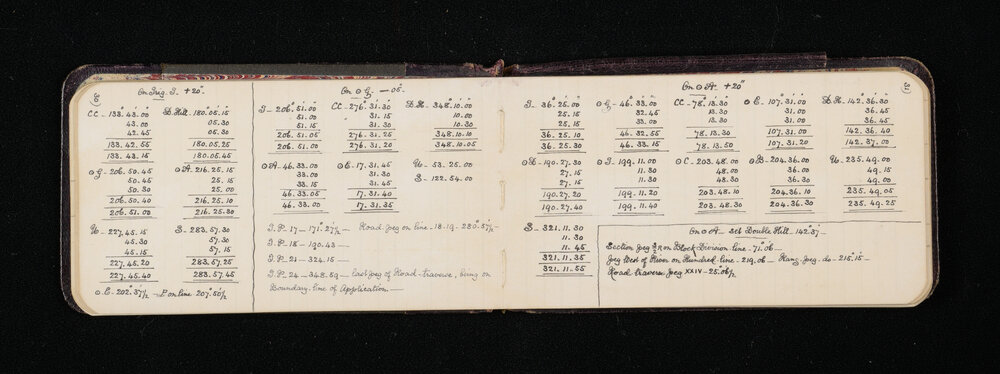 30
On Trig. I. +20"
CC - 133.43.00 D. Hill. 180.05.15
43.00 05.30
42.45 05.30
133.42.55 180.05.25
133.43.15 180.05.45
⊙G - 206.50.45 ⊙A. 216.25.15
50.45 25.15
50.30 25.00
206.50.40 216.25.10
206.51.00 216.25.30
U - 227.45.15 S - 283.57.30
45.30 57.30
45.15 57.15
227.45.20 283.57.25
227.45.40 283.57.45
⊙E - 202.37½ - P on line 207.50½
On ⊙ G - 05"
I - 206°.51'.00" CC - 276°.31'.30" D.H - 348°.10'.00"
51.00 31.15 10.00
51.15 31.30 10.30
206.51.05 276.31.25 348.10.10
206.51.00 276.31.20 348.10.05
⊙A. 46.33.00 ⊙E. 17.31.45 U - 53.25.00
33.00 31.30 S - 122.54.00
33.15 31.45
46.33.05 17.31.40
46.33.00 17.31.35
I.P. 17 - 171°.27½ - Road peg on line - 18-19 - 280°.57½ -
I.P. 18 - 190.43 -
I.P. 21 - 324.15 -
I.P. 24 - 348.59 - Last peg of Road-traverse, being on
Boundary-line of Application. -
31
On ⊙ A. +20"
I - 36°.25'.00" ⊙G - 46°.33'.00" CC - 78°.13'.30" ⊙E - 107°.31'.00" D.H - 142°.36'.30"
25.15 32.45 13.30 31.00 36.45
25.15 33.00 13.30 31.00 36.45
36.25.10 46.32.55 78.13.30 107.31.00 142.36.40
36.25.30 46.33.15 78.13.50 107.31.20 142.37.00
⊙D - 190.27.30 ⊙I - 199.11.00 ⊙C - 203.48.00 ⊙B - 204.36.00 U - 235.49.00
27.15 11.30 48.00 36.00 49.15
27.15 11.30 48.30 36.30 49.00
190.27.20 199.11.20 203.48.10 204.36.10 235.49.05
190.27.40 199.11.40 203.48.30 204.36.30 235.49.25
S - 321.11.30
11.30
11.45
321.11.35
321.11.55
On ⊙ A - set Double Hill - 142°.37' -
Section peg on Block Division line - 71°.06 -
Peg West of River on Hundred-line - 219.06 - Rang. peg. do - 215.15 -
Road traverse peg XXIV - 25.06½